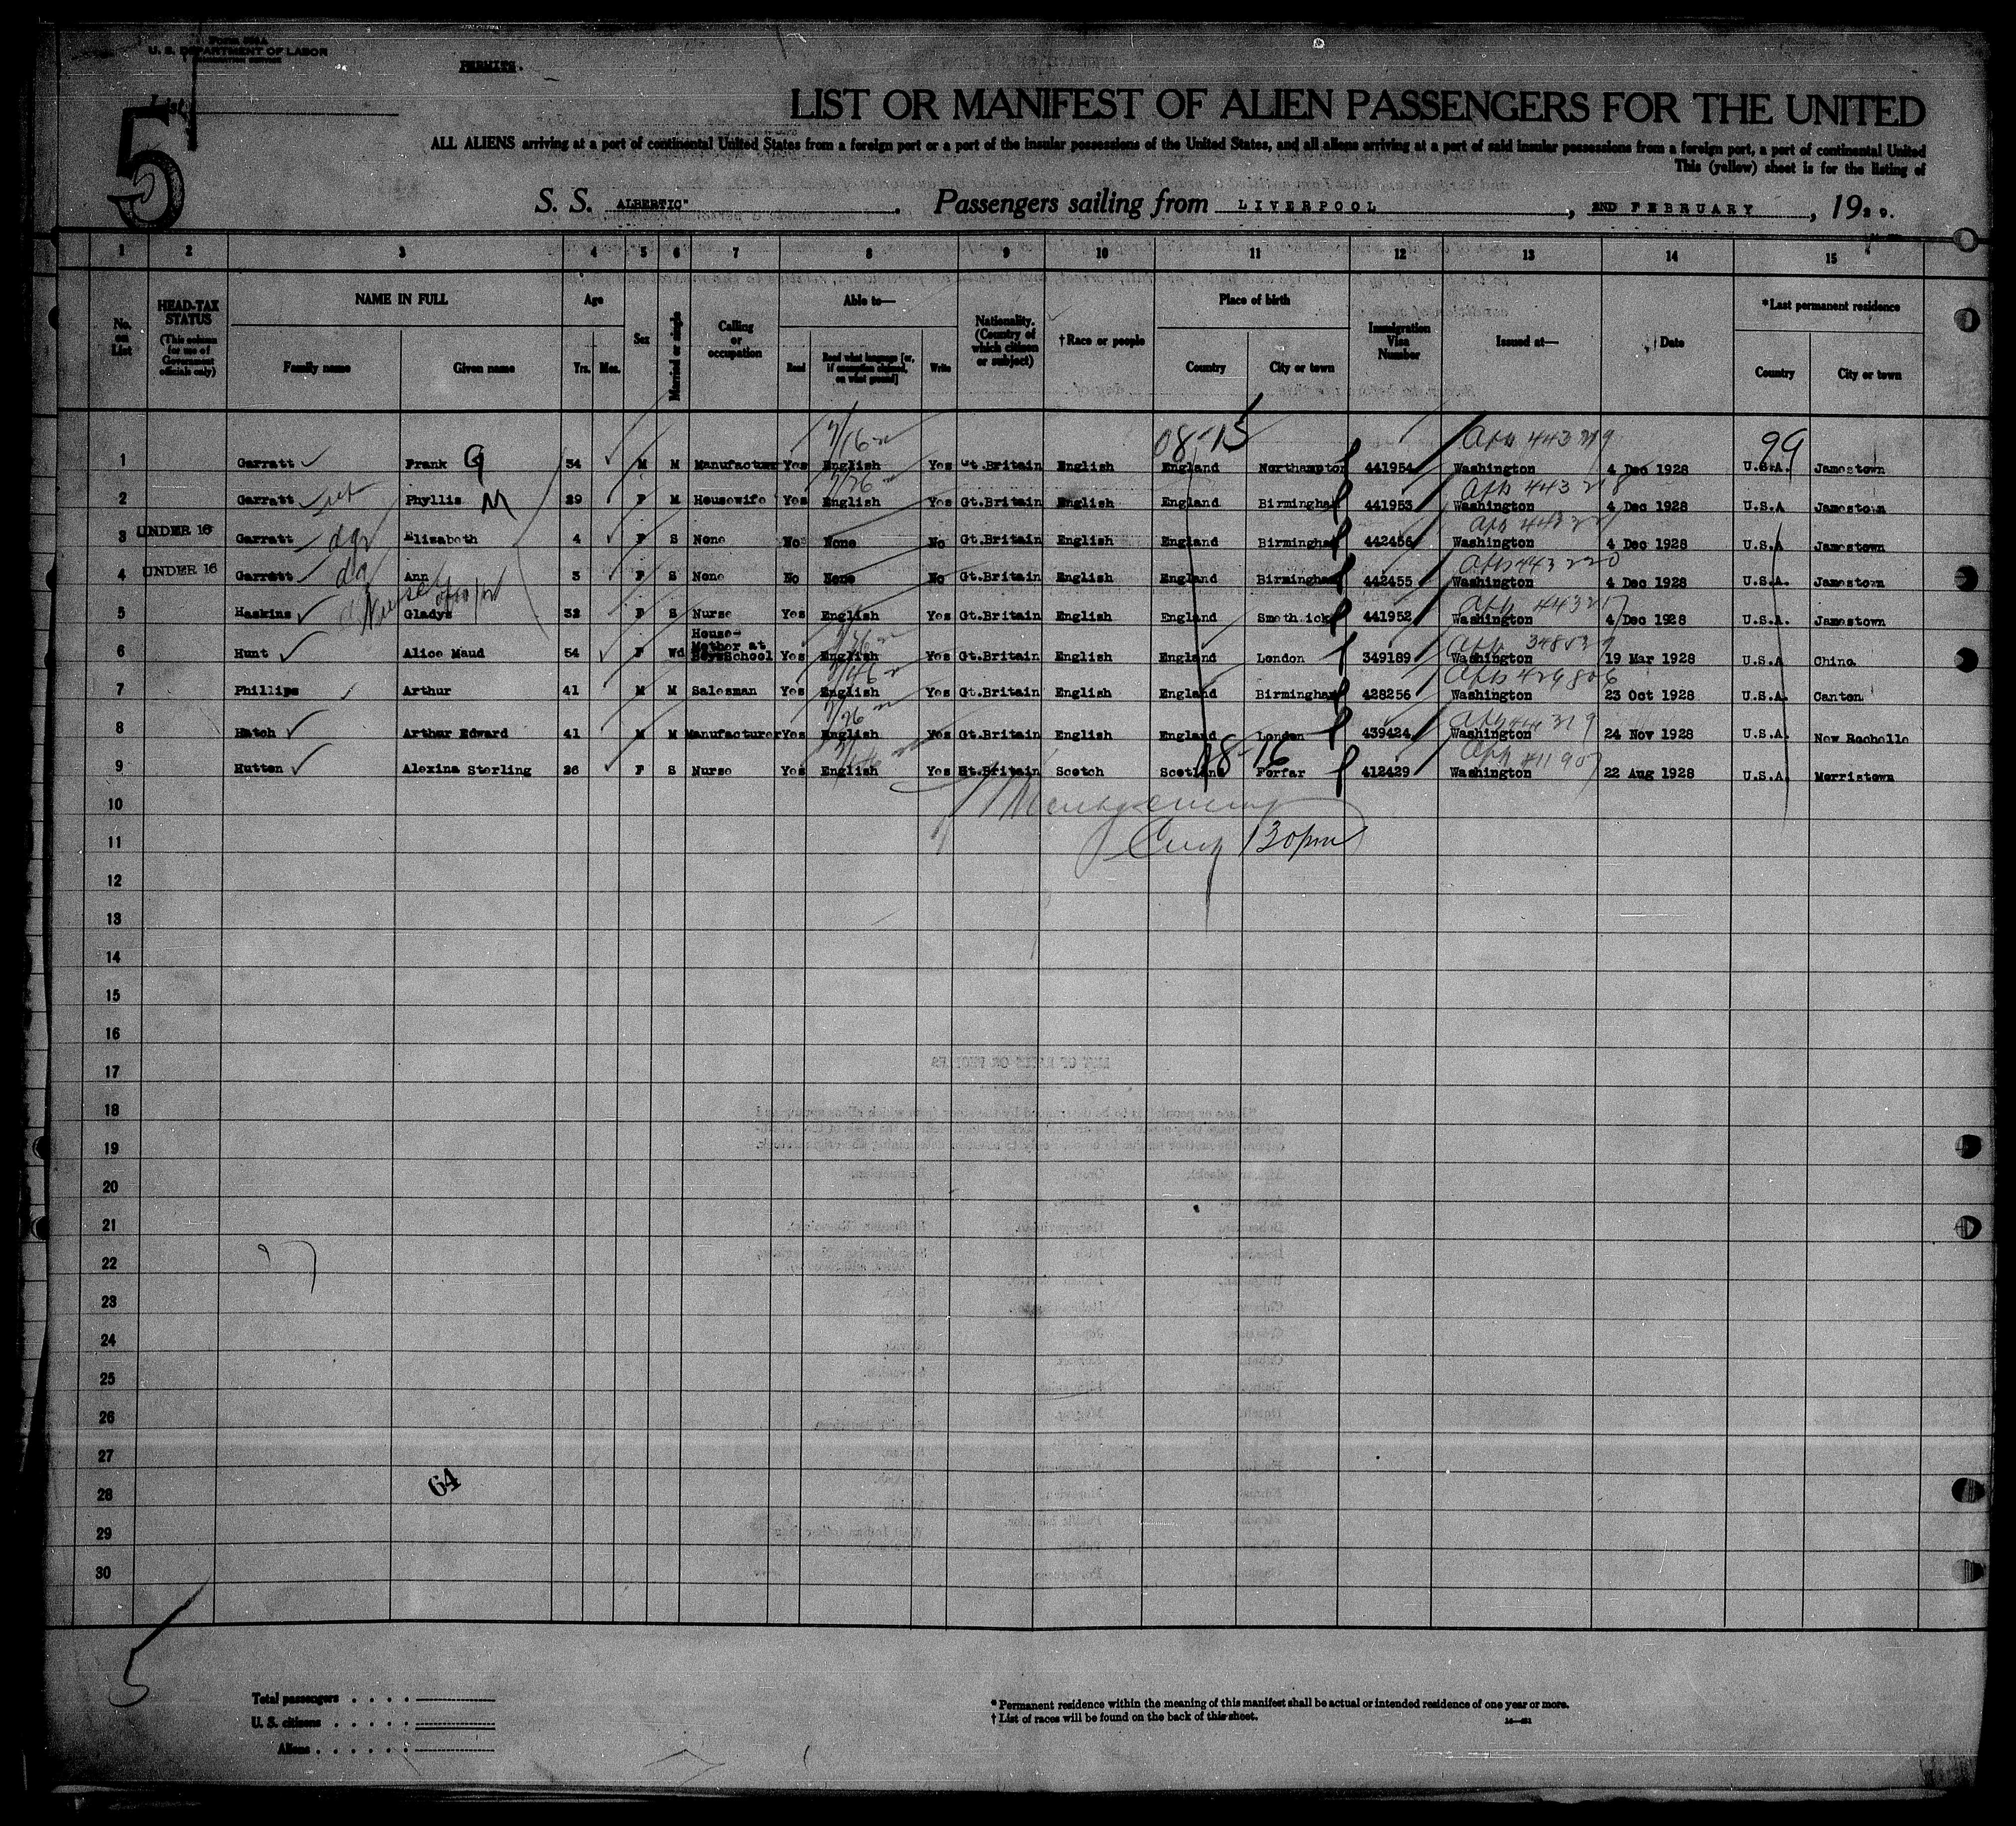 U. S. DEPARTMENT OF LABOR
PERMITS.
List
5
LIST OR MANIFEST OF ALIEN PASSENGERS FOR THE UNITED
ALL ALIENS arriving at a port of continental United States from a foreign port or a port of the insular possessions of the United States, and all aliens arriving at a port of said insular possessions from a foreign port, a port of continental United
This (yellow) sheet is for the listing of
S. S. ALBERTIC" . Passengers sailing from LIVERPOOL , 2ND FEBRUARY , 1929.
1 2 3 4 5 6 7 8 9 10 11 12 13 14 15
No. on List
HEAD-TAX STATUS (This column for use of Government officials only)
NAME IN FULL Family name Given name
Age Yrs. Mos.
Sex
Married or single
Calling or occupation
Able to— Read Read what language [or, if exemption claimed, on what ground] Write
Nationality. (Country of which citizen or subject)
†Race or people
Place of birth Country City or town
Immigration Visa Number
Issued at—
Date
*Last permanent residence Country City or town
08-15 99
1 Garratt Frank G 34 M M Manufacturer Yes English Yes Gt.Britain English England Northampton 441954 Washington 4 Dec 1928 U.S.A. Jamestown
2 Garratt Phyllis M 29 F M Housewife Yes English Yes Gt.Britain English England Birmingham 441953 Washington 4 Dec 1928 U.S.A Jamestown
3 UNDER 16 Garratt Elizabeth 4 F S None No None No Gt.Britain English England Birmingham 442456 Washington 4 Dec 1928 U.S.A Jamestown
4 UNDER 16 Garratt Ann 3 F S None No None No Gt.Britain English England Birmingham 442455 Washington 4 Dec 1928 U.S.A. Jamestown
5 Haskins Nurse Gladys 32 F S Nurse Yes English Yes Gt.Britain English England Smethick 441952 Washington 4 Dec 1928 U.S.A. Jamestown
6 Hunt Alice Maud 54 F Wd House-Mother at BoysSchool Yes English Yes Gt.Britain English England London 349189 Washington 19 Mar 1928 U.S.A China
7 Phillips Arthur 41 M M Salesman Yes English Yes Gt.Britain English England Birmingham 428256 Washington 23 Oct 1928 U.S.A. Canton
8 Hatch Arthur Edward 41 M M Manufacturer Yes English Yes Gt.Britain English England London 439424 Washington 24 Nov 1928 U.S.A. New Rochelle
08-16
9 Hutton Alexina Sterling 26 F S Nurse Yes English Yes Gt.Britain Scotch Scotland Forfar 412429 Washington 22 Aug 1928 U.S.A. Morristown
10
11 130pm
12
13
14
15
16
17
18
19
20
21
22
23
24
25
26
27
28 64
29
30
5
Total passengers
U. S. citizens
Aliens
* Permanent residence within the meaning of this manifest shall be actual or intended residence of one year or more.
† List of races will be found on the back of this sheet.